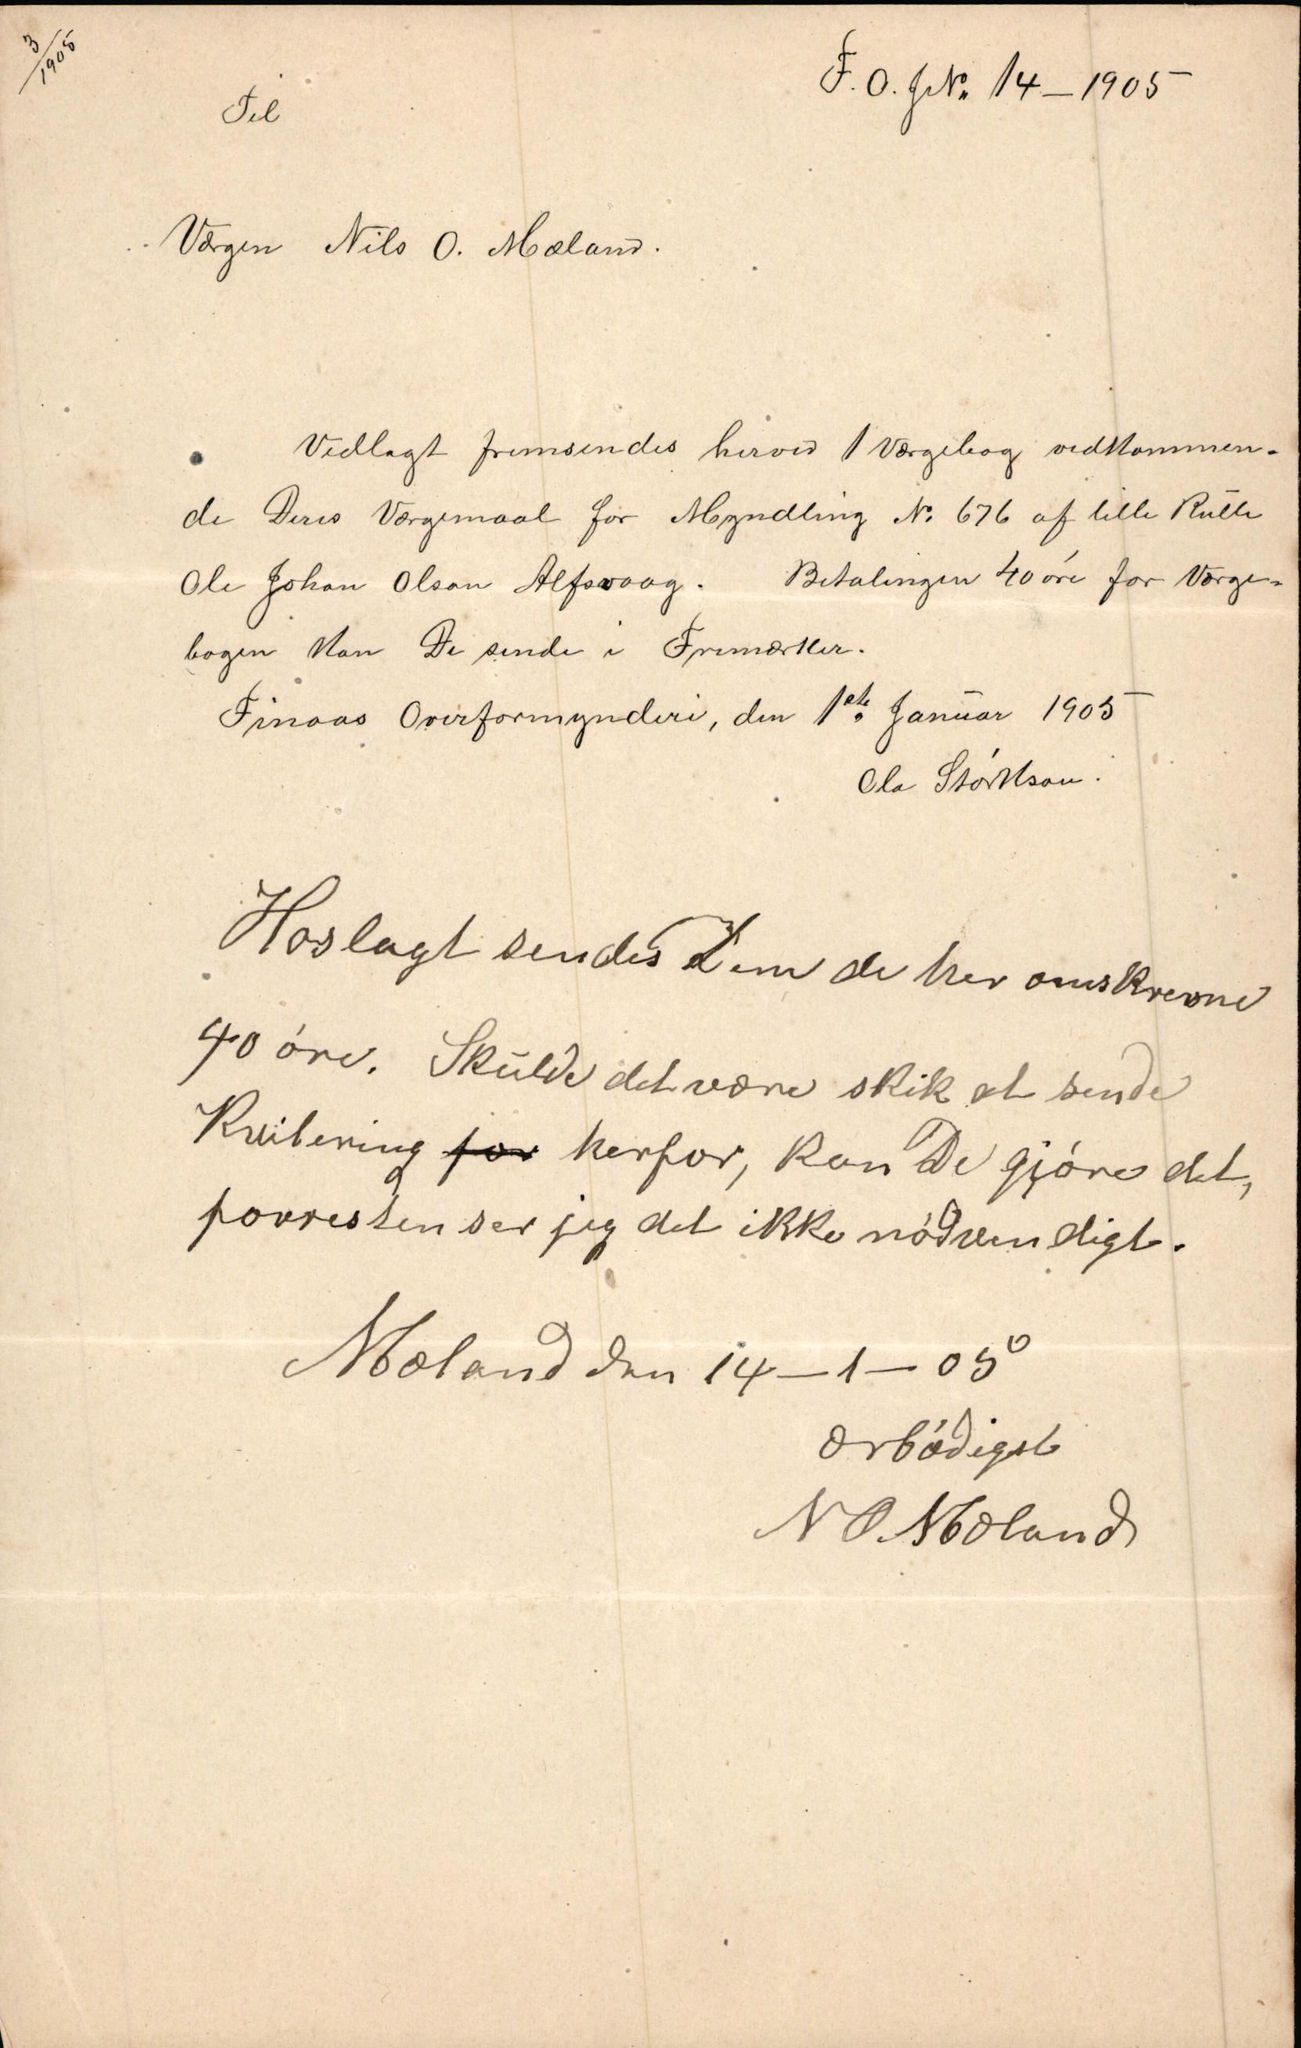 3/1905
F. O. JNo. 14 – 1905
Til
Værgen Nils O. Mæland.
Vedlagt fremsendes herved 1 Værgebog vedkommen-
de Deres Værgemaal for Myndling No. 676 af lille Rulle
Ole Johan Olson Alfsvaag. Betalingen 40 öre for Værge-
bogen kan De sende i Frimærker.
Finaas Overformynderi, den 1ste Januar 1905
Ola Störkson.
Hoslagt sendes Dem de her omskrevne
40 öre. Skulde det være skik at sende
Kvitering for herfor, kan De gjöre det,
forresten ser jeg det ikke nödvendigt.
Mæland den 14 – 1 – 05
ærbödigst
N O. Mæland